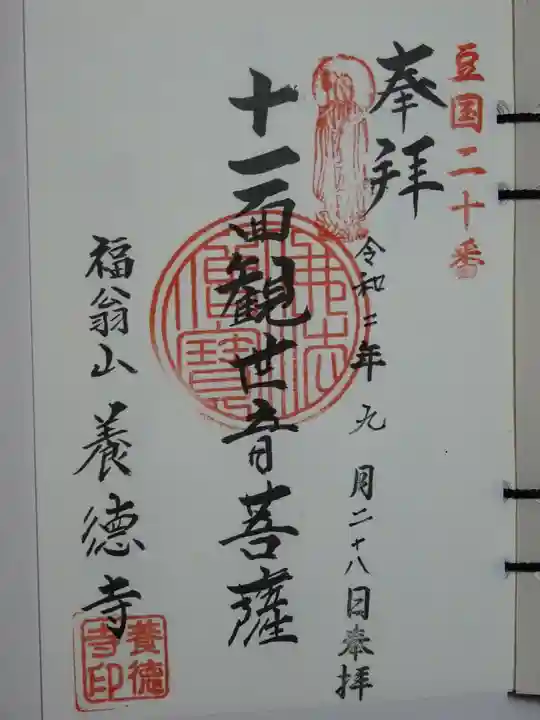 豆国二十番
奉拝
令和二年九月二十八日奉拝
十一面観世音菩薩
佛法僧寳
福翁山養徳寺
養徳寺印